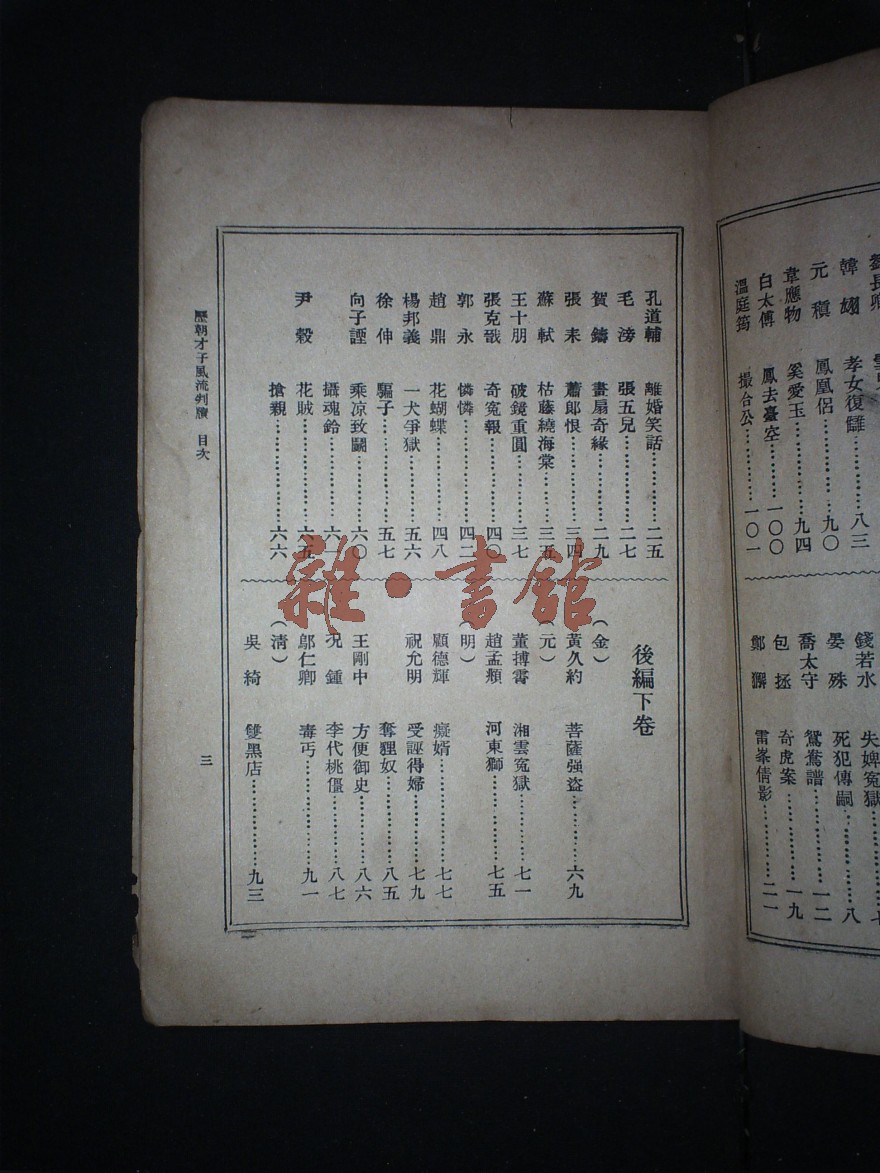 韓翃　孝女復讎………八三
元稹　鳳凰侶………九〇
韋應物　奚愛玉………九四
白太傅　鳳去臺空………一〇〇
溫庭筠　撮台公………一〇一
錢若水　失婢冤獄………七
晏殊　死犯傳嗣………八
喬太守　鴛鴦譜………一二
包拯　奇虎案………一九
鄭獬　雷峯倩影………二一
孔道輔　離婚笑話………二五
毛滂　張五兒………二七
賀鑄　畫扇奇緣………二九
張耒　蕭郎恨………三四
蘇軾　枯藤繞海棠………三五
王十朋　破鏡重圓………三七
張克戩　奇冤報………四〇
郭永　憐憐………四二
趙鼎　花蝴蝶………四八
楊邦義　一犬爭獄………五六
徐伸　騙子………五七
向子諲　乘凉致鬭………六〇
攝魂鈴………六一
尹穀　花賊………六五
搶親………六六
後編下卷
（金）
黃久約　菩薩强盜………六九
（元）
董搏霄　湘雲冤獄………七一
趙孟頫　河東獅………七五
（明）
顧德輝　癡婿………七七
祝允明　受誣得婦………七九
奪狸奴………八五
王剛中　方便御史………八六
况鍾　李代桃僵………八七
鄔仁卿　毒丐………九一
（清）
吳綺　雙黑店………九三
歷朝才子風流判牘　目次
三
雜·書館